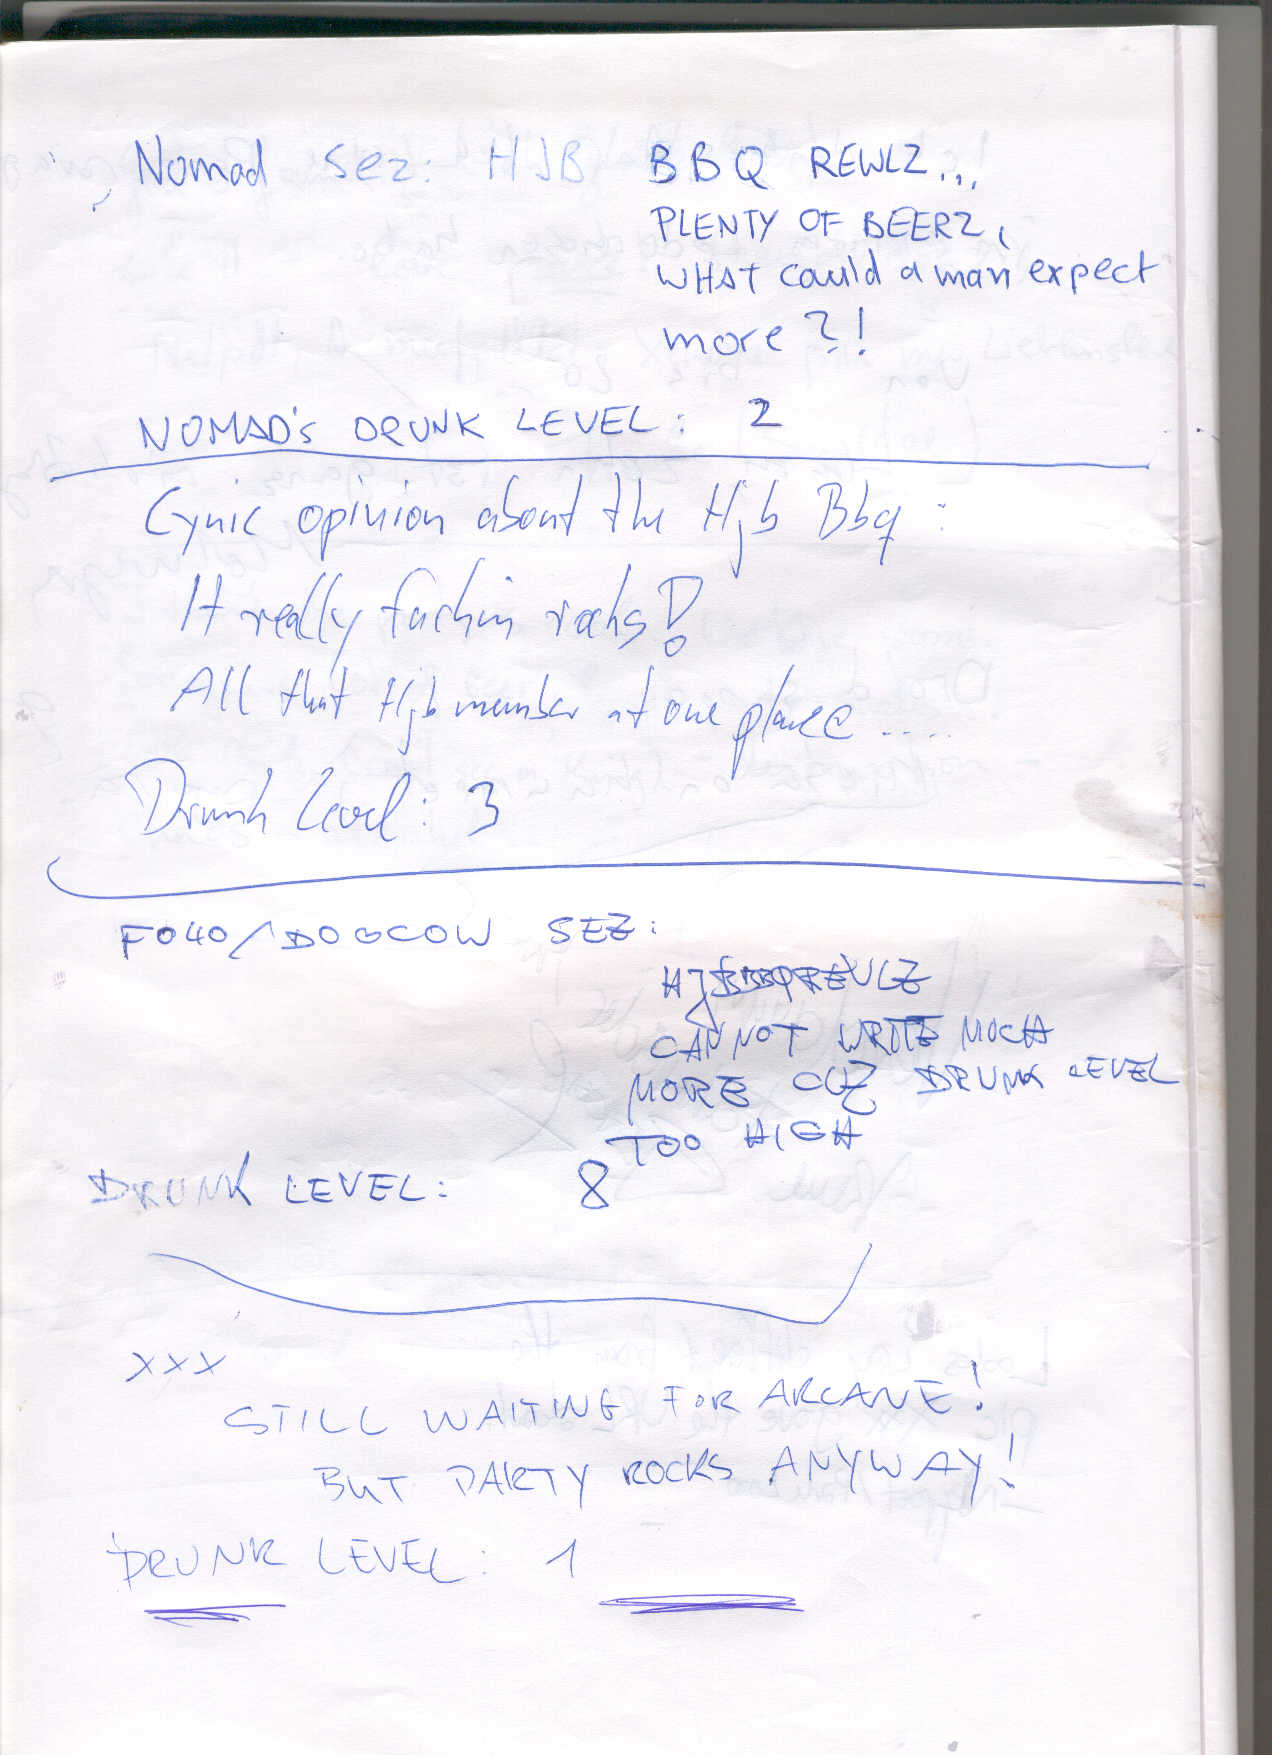 Nomad sez: HJB BBQ REWLZ...
PLENTY OF BEERZ,
WHAT could a man expect
more?!
NOMAD's DRUNK LEVEL: 2
Cynic opinion about the Hjb Bbq:
It really fuckin rocks!
All that Hjb member at one place ....
Drunk level: 3
FO4O/DOGCOW SEZ:
HJBBBQREULZ
CANNOT WRITE MUCH
MORE CUZ DRUNK LEVEL
TOO HIGH
DRUNK LEVEL: 8
XXX
STILL WAITING FOR ARCANE!
BUT PARTY ROCKS ANYWAY!
DRUNK LEVEL: 1